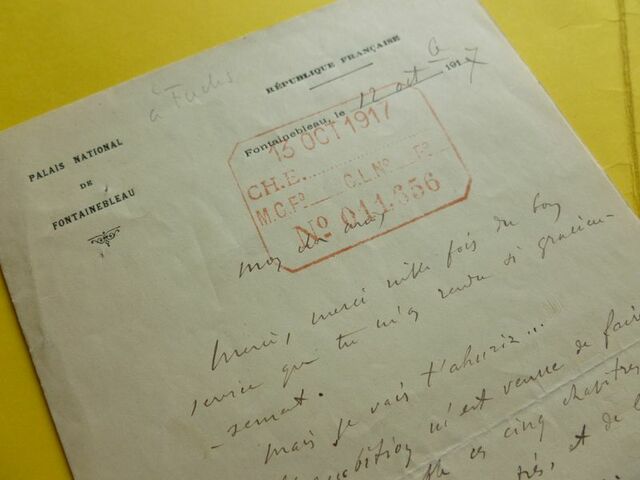 à Fuchs
RÉPUBLIQUE FRANÇAISE
PALAIS NATIONAL
DE
FONTAINEBLEAU
Fontainebleau, le 12 oct 1917
13 OCT 1917
CH.E.
M.C.Fº C.L.Nº Fº
Nº 011.356
Mon cher ami,
Merci, merci mille fois du bon
service que tu m'as rendu si gracieu-
-sement.
Mais je vais t'ahurir...
ambition m'est venue de faire
ces cinq chapitres
très, et de l